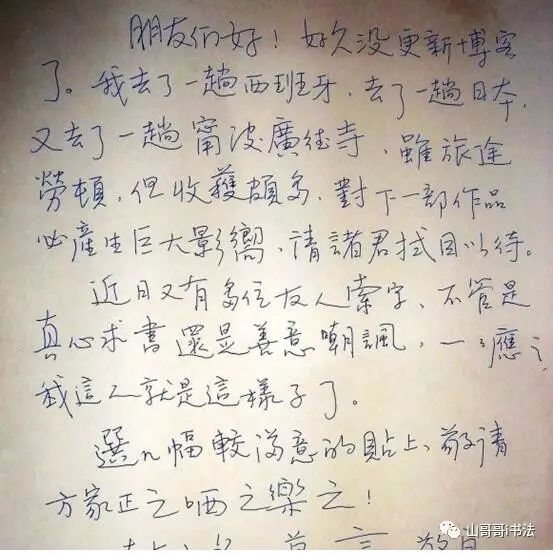 朋友们好！好久没更新博客
了。我去了一趟西班牙，去了一趟日本，
又去了一趟甯波廣德寺，雖旅途
勞頓，但收獲頗多，對下一部作品
必產生巨大影嚮、請諸君拭目以待。
近日又有多位友人索字、不管是
真心求書還是善意嘲諷，一一應之
我這人就是這樣子了。
選几幅較滿意的貼上、敬请
方家正之哂之樂之！
山哥哥i书法